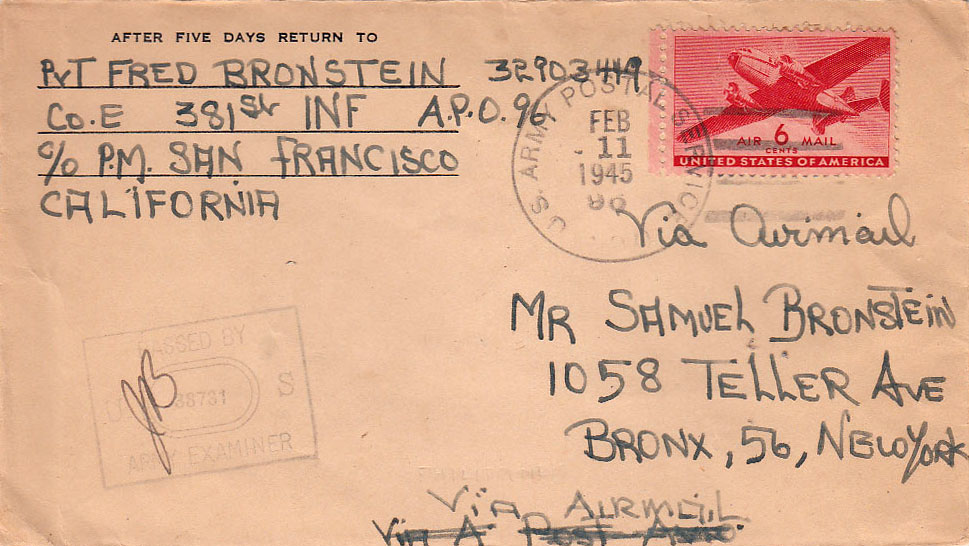 AFTER FIVE DAYS RETURN TO
PVT FRED BRONSTEIN 32903449
Co. E 381st INF A.P.O. 96
c/o P.M. SAN FRANCISCO
CALIFORNIA
U.S. ARMY POSTAL SERVICE
FEB
11
1945
AIR 6 MAIL
CENTS
UNITED STATES OF AMERICA
Via Airmail
MR SAMUEL BRONSTEIN
1058 TELLER AVE
BRONX, 56, NEW YORK
PASSED BY
U 38731 S
ARMY EXAMINER
VIA AIRMAIL
Via A